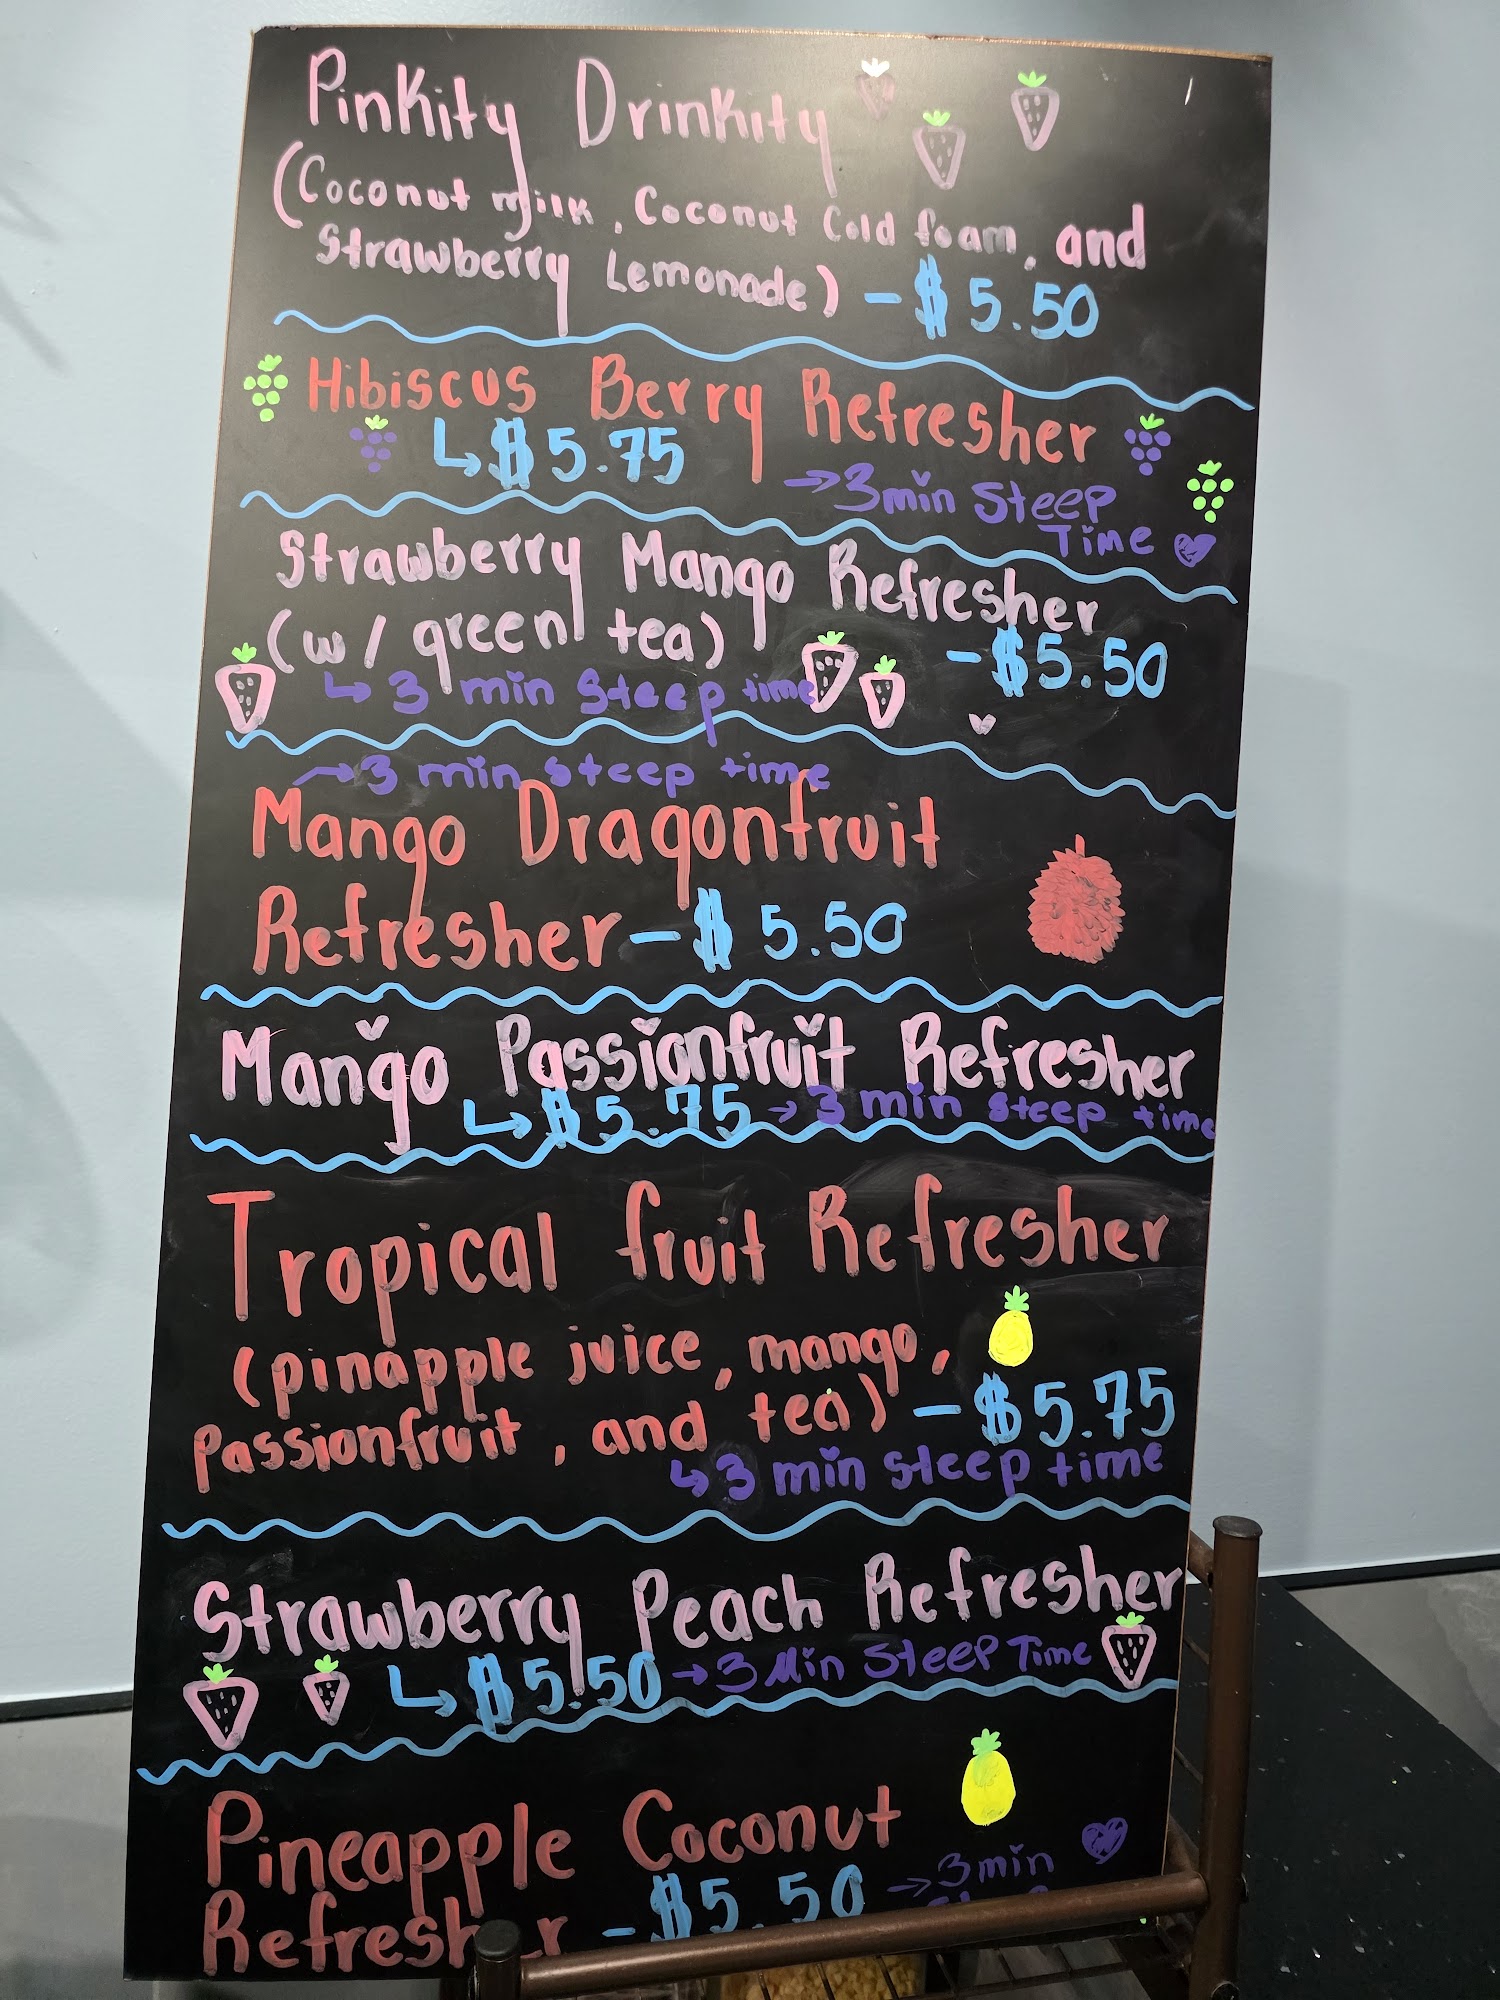 Pinkity Drinkity
(Coconut milk, Coconut Cold foam, and
Strawberry Lemonade) - $5.50
Hibiscus Berry Refresher
$5.75
→ 3 min Steep
Time
Strawberry Mango Refresher
(w/ green tea)
- $5.50
3 min Steep time
→ 3 min steep time
Mango Dragonfruit
Refresher - $5.50
Mango Passionfruit Refresher
$5.75 → 3 min steep time
Tropical fruit Refresher
(pinapple juice, mango,
passionfruit, and tea) - $5.75
3 min steep time
Strawberry Peach Refresher
$5.50 → 3 Min Steep Time
Pineapple Coconut
Refresher - $5.50
→ 3 min